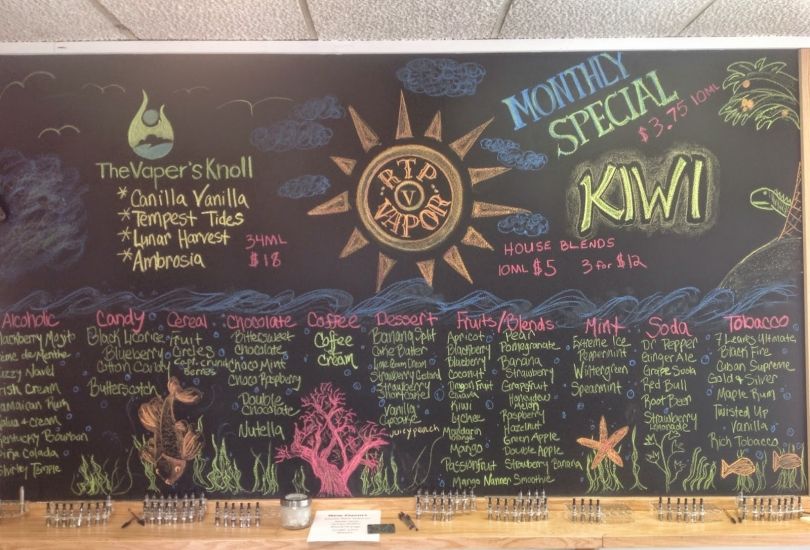 The Vaper's Knoll
*Canilla Vanilla
*Tempest Tides
*Lunar Harvest
*Ambrosia
34ML
$18
RTP
V
VAPOR
MONTHLY
SPECIAL
$3.75 10ML
KIWI
HOUSE BLENDS
10ML $5 3 for $12
Alcoholic
lackberry Mojito
eme de Menthe
uzzy Navel
rish Cream
amaican Rush
lua & cream
entucky Bourbon
iña Colada
Shirley Temple
Candy
Black Licorice
Blueberry
Cotton Candy
Butterscotch
Cereal
Fruit
Circles
Capt. Crunk
Berries
Chocolate
Bittersweet
Chocolate
Choco Mint
Choco Raspberry
Double
Chocolate
Nutella
Coffee
Coffee
&
Cream
Dessert
Banana Split
Cake Batter
Strawberry
Shortcake
Vanilla
Cupcake
Juicy peach
Fruits/Blends
Apricot
Blackberry
Blueberry
Coconut
Dragon Fruit
Guava
Kiwi
Lychee
Mandarin
Orange
Mango
Passionfruit
Mango Nanner Smoothie
Pear
Pomegranate
Banana
Strawberry
Grapefruit
Honeydew
Melon
Raspberry
Hazelnut
Green Apple
Double Apple
Strawberry Banana
Mint
Extreme Ice
Peppermint
Wintergreen
Spearmint
Soda
Dr Pepper
Ginger Ale
Grape Soda
Red Bull
Root Beer
Strawberry
Lemonade
Tobacco
7 Leaves Ultimate
Black Fire
Cuban Supreme
Gold & Silver
Maple Rum
Twisted Up
Vanilla
Rich Tobacco